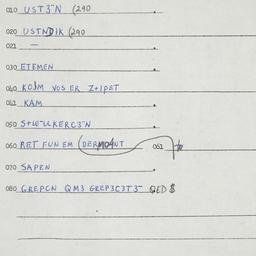 010 UST3-N (290
020 USTNDIK (290
021 —
030 ETEMEN
040 KOJM VOS ER Z+IPET
041 KAM
050 S+W-ULKERC3-N
060 RET FUN EM (DERMO 061
070 SAPEN
080 GREPCN QM3 GREP3C3T3- QED $